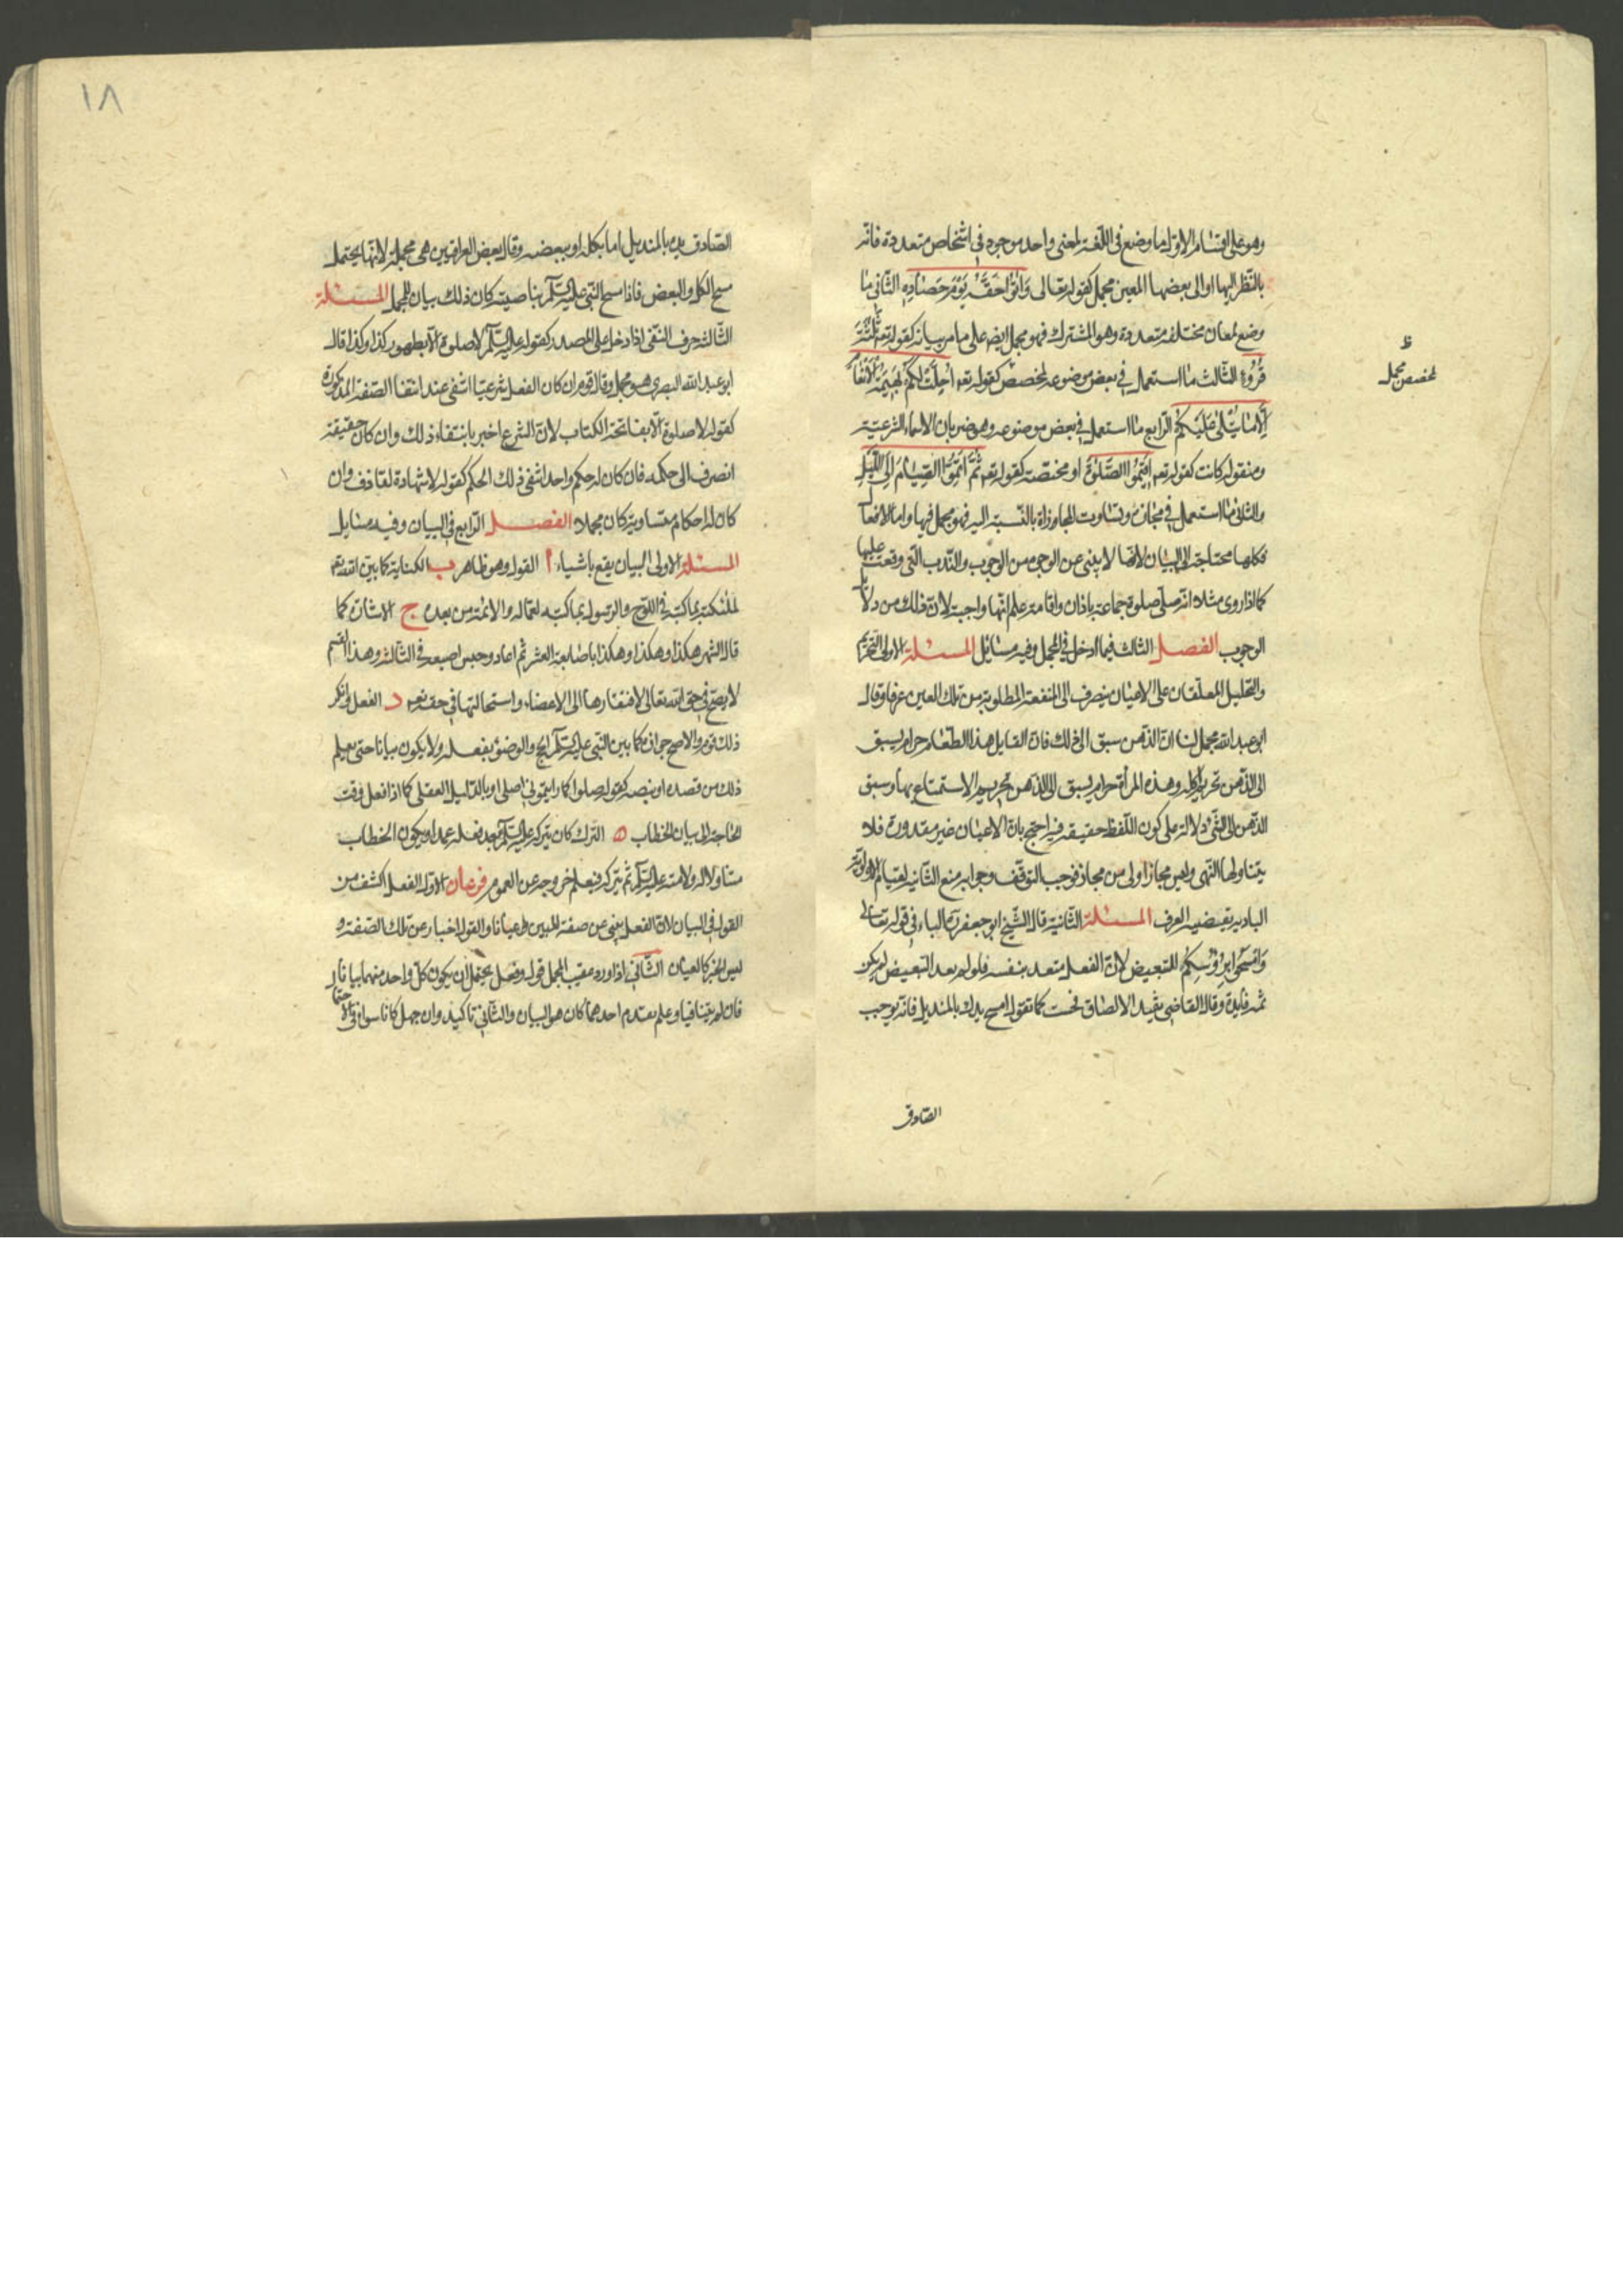 وهو على اقسام الاول ما وضع في اللغة لمعنى واحد موجود في اشخاص متعددة فانه
بالنظر اليها او الى بعضها المعين مجمل كقوله تعالى وَاتُوا حَقَّهُ يَوْمَ حَصٰادِهِ الثاني ما
وضع لمعان مختلفة متعددة وهو المشترك فهو مجمل ايضا على ما مر بيانه كقوله تعم ثَلٰثَةَ
قُرُوءٍ الثالث ما استعمل في بعض موضوعه لمخصص كقوله تعم اُحِلَّتْ لَكُمْ بَهِيمَةُ الْاَنْعٰامِ
اِلّٰا مٰا يُتْلىٰ عَلَيْكُمْ الرابع ما استعمل في بعض موضوعه وهو ضربان الاسماء الشرعية
ومنقولة كانت كقوله تعم اَقِيمُوا الصَّلٰوةَ او مخصصة كقوله تعم ثُمَّ اَتِمُّوا الصِّيٰامَ اِلَى اللَّيْلِ
والثاني ما استعمل في مجازه وتساوت المجازات بالنسبة اليه فهو مجمل فيها واما الافعال
فكلها محتاجة الى البيان لانها لا ينبئ عن الوجوه من الوجوب والندب التي وقعت عليها
كما اذا روى مثلا انه صلى صلوة جماعة باذان واقامة علم انها واجبة لان ذلك من دلائل
الوجوب الفصل الثالث فيما ادخل في المجمل وفيه مسائل المسئلة الاولى التحريم
والتحليل المعلقان على الاعيان ينصرف الى المنفعة المطلوبة من تلك العين عرفا وقال
ابو عبد الله مجمل لنا ان الذهن سبق الى ذلك فان القايل هذا الطعام حرام يسبق
الى الذهن تحريم اكله وهذه المرأة حرام يسبق الى الذهن تحريم الاستمتاع بها وسبق
الذهن الى الشئ دلالة على كون اللفظ حقيقة فيه احتج بان الاعيان غير مقدورة فلا
يتناولها النهى وليس مجاز اولى من مجاز فوجب التوقف وجوابه منع الثانية لقيام الاولوية
البادية بقضية العرف المسئلة الثانية قال الشيخ ابو جعفر ره الباء في قوله تعالى
وَامْسَحُوا بِرُؤُسِكُمْ للتبعيض لان الفعل متعد بنفسه فلو لم يعد التبعيض لم يكن
ثمه فايدة وقال القاضي يفيد الالصاق فحسب كما تقول امسح يدك بالمنديل فانه يوجب
الصادق
ظ
لمخصص مجمل
١٨
الصادق يده بالمنديل اما بكله او ببعضه وقال بعض العراقيين هي مجملة لانها يحتمل
مسح الكل والبعض فاذا مسح النبي عليه السلم بناصيته كان ذلك بيان للمجمل المسئلة
الثالثة حرف النفي اذا دخل على المصدر كقوله عليه السلم لا صلوة الا بطهور كذا وكذا قال
ابو عبد الله البصرى هو مجمل وقال قوم ان كان الفعل شرعيا انتفى عند انتفا الصفة المذكورة
كقوله لا صلوة الا بفاتحة الكتاب لان الشرع اخبر بانتفاء ذلك وان كان حقيقة
انصرف الى حكمه فان كان له حكم واحد انتفى ذلك الحكم كقوله لا شهادة لقاذف وان
كان له احكام متساوية كان مجملا الفصل الرابع في البيان وفيه مسايل
المسئلة الاولى البيان يقع باشياء ا القول وهو ظاهر ب الكناية كما بين الله تعم
لملئكته بما كتبه في اللوح والرسول بما كتبه لعماله والائمة من بعده ج الاشارة كما
قال الشهر هكذا وهكذا وهكذا باصابعه العشر ثم اعاد وحبس اصبعه في الثالثة وهذا القسم
لا يصح في حق الله تعالى لافتقارها الى الاعضاء واستحالتها في حقه تعم د الفعل وانكر
ذلك قوم والاصح جوازه كما بين النبي عليه السلم الحج والوضوء بفعله ولا يكون بيانا حتى يعلم
ذلك من قصده او بنصه كقوله صلوا كما رايتموني اصلى او بالدليل العقلى كما اذا فعل وقت
الحاجة الى بيان الخطاب ه الترك كان يتركه عليه السلم بعد فعله عمدا ويكون الخطاب
متناولا له ولامته عليه السلم ثم يتركه فنعلم خروجه عن العموم فرعان الاول الفعل اكشف من
القول في البيان لان الفعل ينبئ عن صفة المبين عيانا والقول اخبار عن تلك الصفة و
ليس الخبر كالعيان الثاني اذا ورد عقيب المجمل قول وفعل يحتمل ان يكون كل واحد منهما بيانا له
فان لم يتنافيا وعلم تقدم احدهما كان هو البيان والثاني تاكيد وان جهل كانا سواء في الاحتمال